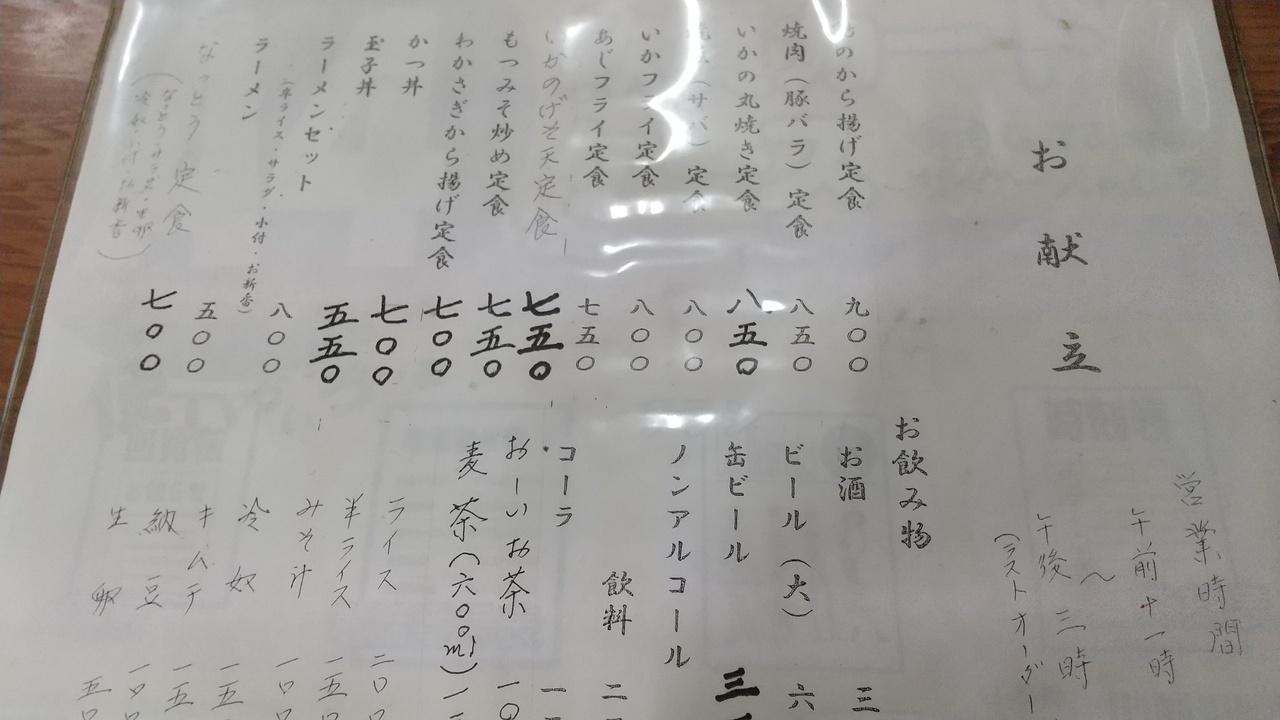 お献立
営業時間
午前十一時
〜
午後三時
(ラストオーダー
のから揚げ定食 九〇〇
焼肉(豚バラ)定食 八五〇
いかの丸焼き定食 八五〇
(サバ)定食 八〇〇
いかフライ定食 八〇〇
あじフライ定食 七五〇
いかのげそ天定食 七五〇
もつみそ炒め定食 七五〇
わかさぎから揚げ定食 七〇〇
かつ丼 七〇〇
玉子丼 五五〇
ラーメンセット 八〇〇
(半ライス・サラダ・小付・お新香)
ラーメン 五〇〇
なっとう定食 七〇〇
お飲み物
お酒 三
ビール(大) 六
缶ビール 三
ノンアルコール
飲料 二
コーラ 一
おーいお茶 一〇
麦茶(六〇〇ml) 一
ライス 二〇〇
半ライス 一五〇
みそ汁 一〇〇
冷奴 一五〇
キムチ 一五〇
納豆 一〇〇
生卵 五〇